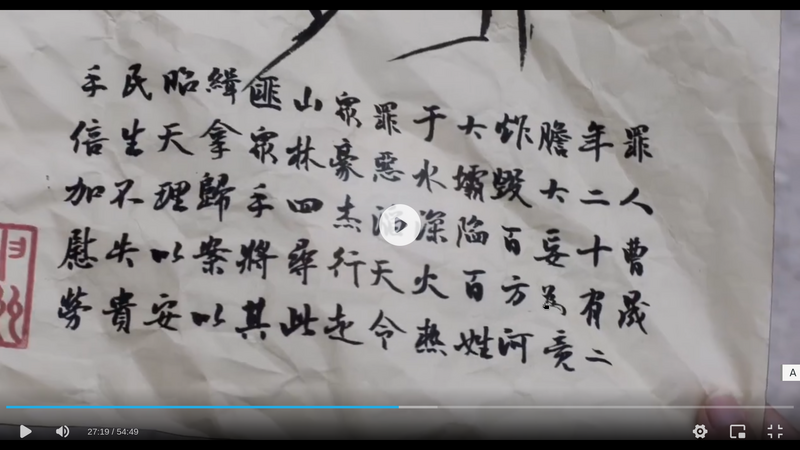 罪人曹晟
年二十有二
膽大妄為竟
炸毀百方河
大壩陷百姓
于水深火熱
罪惡天令
眾豪杰行走
山林四尋此
匪眾手將其
緝拿歸案以
昭天理以安
民生不失貴
手倍加慰勞
A
27:19 / 54:49